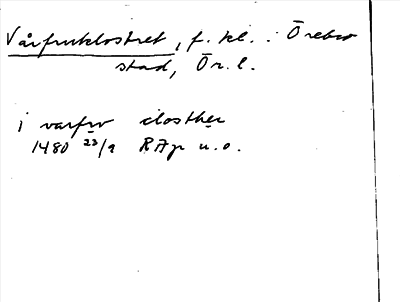 Vårfruklostret, f. kl. i Örebro
stad, Ör. l.
i varfrv closther
1480 23/9 RAp u.o.